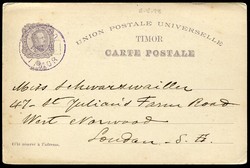 UNION POSTALE UNIVERSELLE
TIMOR
CARTE POSTALE
Miss Schwarzwailler
47 - St Julian's Farm Road
West Norwood
London - S. E.